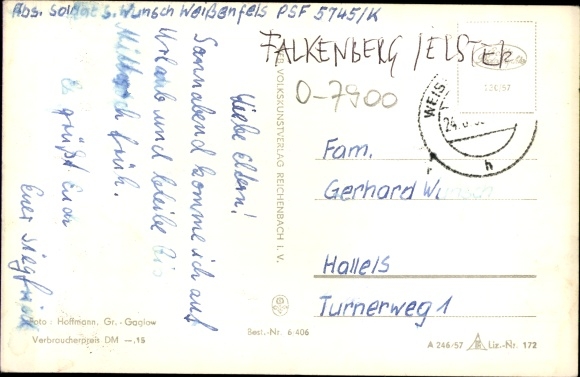 Abs. Soldat S. Wunsch Weißenfels PSF 5745/K
FALKENBERG/ELSTER
O-7900
Liebe Eltern!
Sonnabend komme ich auf
Urlaub und bleibe bis
Mittwoch früh.
Es grüßt Euch
Euer Siegfried
VOLKSKUNSTVERLAG REICHENBACH I. V.
WEIS
24.6
h
Fam.
Gerhard Wunsch
Hallels
Turnerweg 1
Foto: Hoffmann, Gr.-Gaglow
Verbraucherpreis DM —.15
Best.-Nr. 6 406
A 246-57 Liz.-Nr. 172